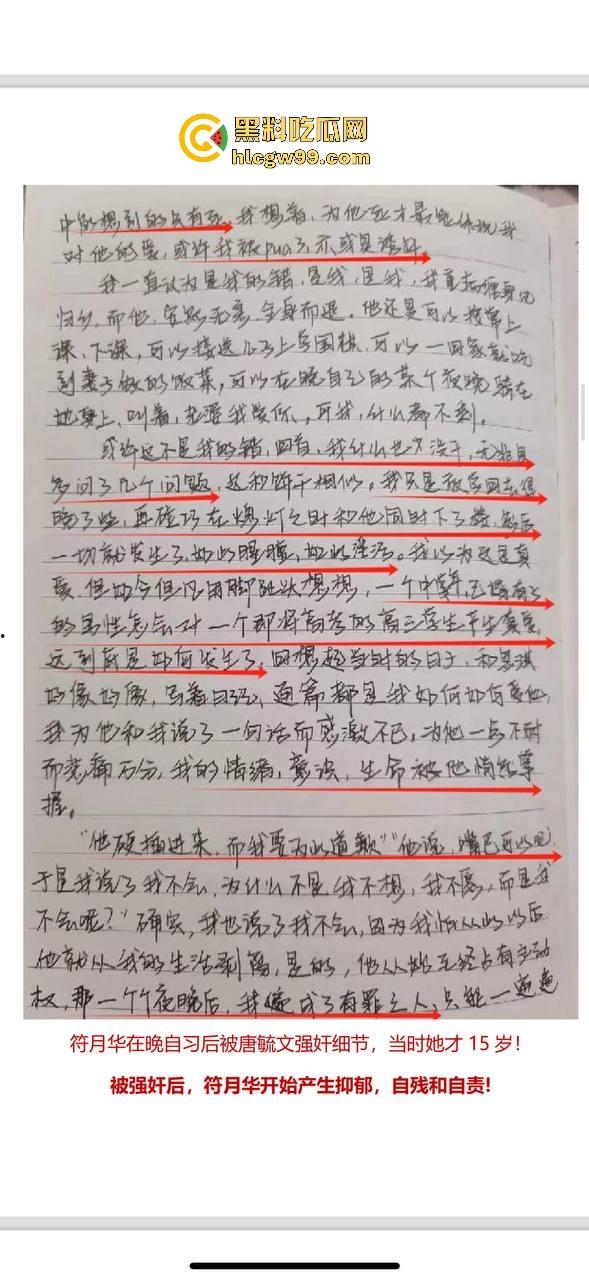 黑料吃瓜网
hlcgw99.com
中能想到的只有死。我想着，为他死才最能体现我
对他的爱，或许我被pua了，亦或是
我一直认为是我的错，是我，是我，我
归乡，而他，安然无恙，全身而退。他还是可以接着上
课，下课，可以接送儿子上学围棋，可以一回家就吃
到妻子做的饭菜，可以在晚自习的某个夜晚骑在
她身上，叫着，老婆我爱你，可我，什么都不剩。
或许这不是我的错，回首，我什么也没干，无非只
多问了几个问题，这和饼干相似。我只是放学回去得
晚了些，再碰巧在熄灯之时和他同时下了楼，然后
一切就发生了，如此，如此。我以为这是真
爱，但如今但凡用脚趾头想想，一个中年已婚有子
的男性怎会对一个即将高考的高三学生产生真爱，
这到底是如何发生了，回想起当时的日子，和思琪
好像好像，写着日记，通篇都是我如何如何爱他，
我为他和我说了一句话而感激不已，为他一点不耐
而悲痛万分，我的情绪，意识，生命被他悄然掌
握。
“他硬插进来，而我要为此道歉”“他说，嘴巴可以吧
于是我说了我不会，为什么不是我不想，我不愿，而是我
不会呢？”确实，我也说了我不会，因为我怕从此以后
他就从我的生活剥离，是的，他从始至终占有主动
权，那一个个夜晚后，我便成了有罪之人，只能一遍遍
符月华在晚自习后被唐毓文强奸细节，当时她才 15 岁！
被强奸后，符月华开始产生抑郁，自残和自责!